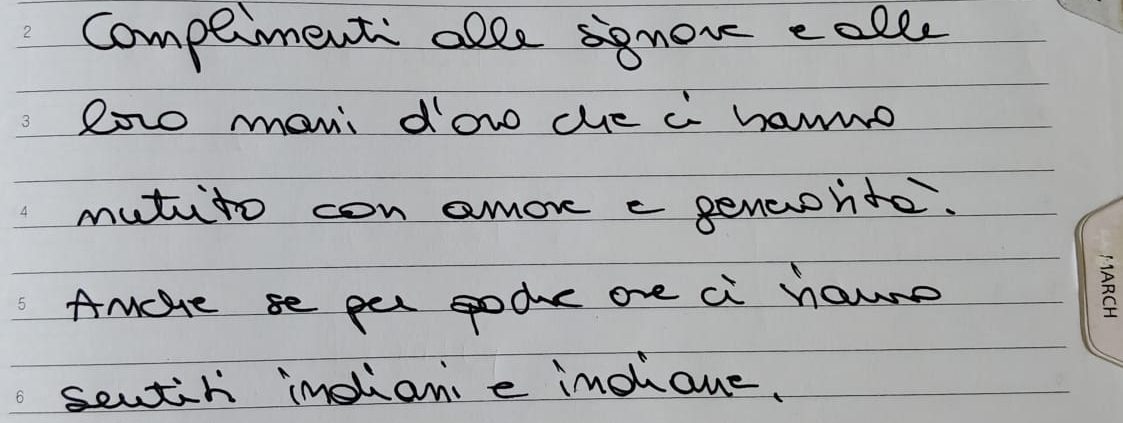 2 Complimenti alle signore e alle
3 loro mani d'oro che ci hanno
4 nutrito con amore e generosità.
5 Anche se per poche ore ci hanno
6 sentiti indiani e indiane.
MARCH